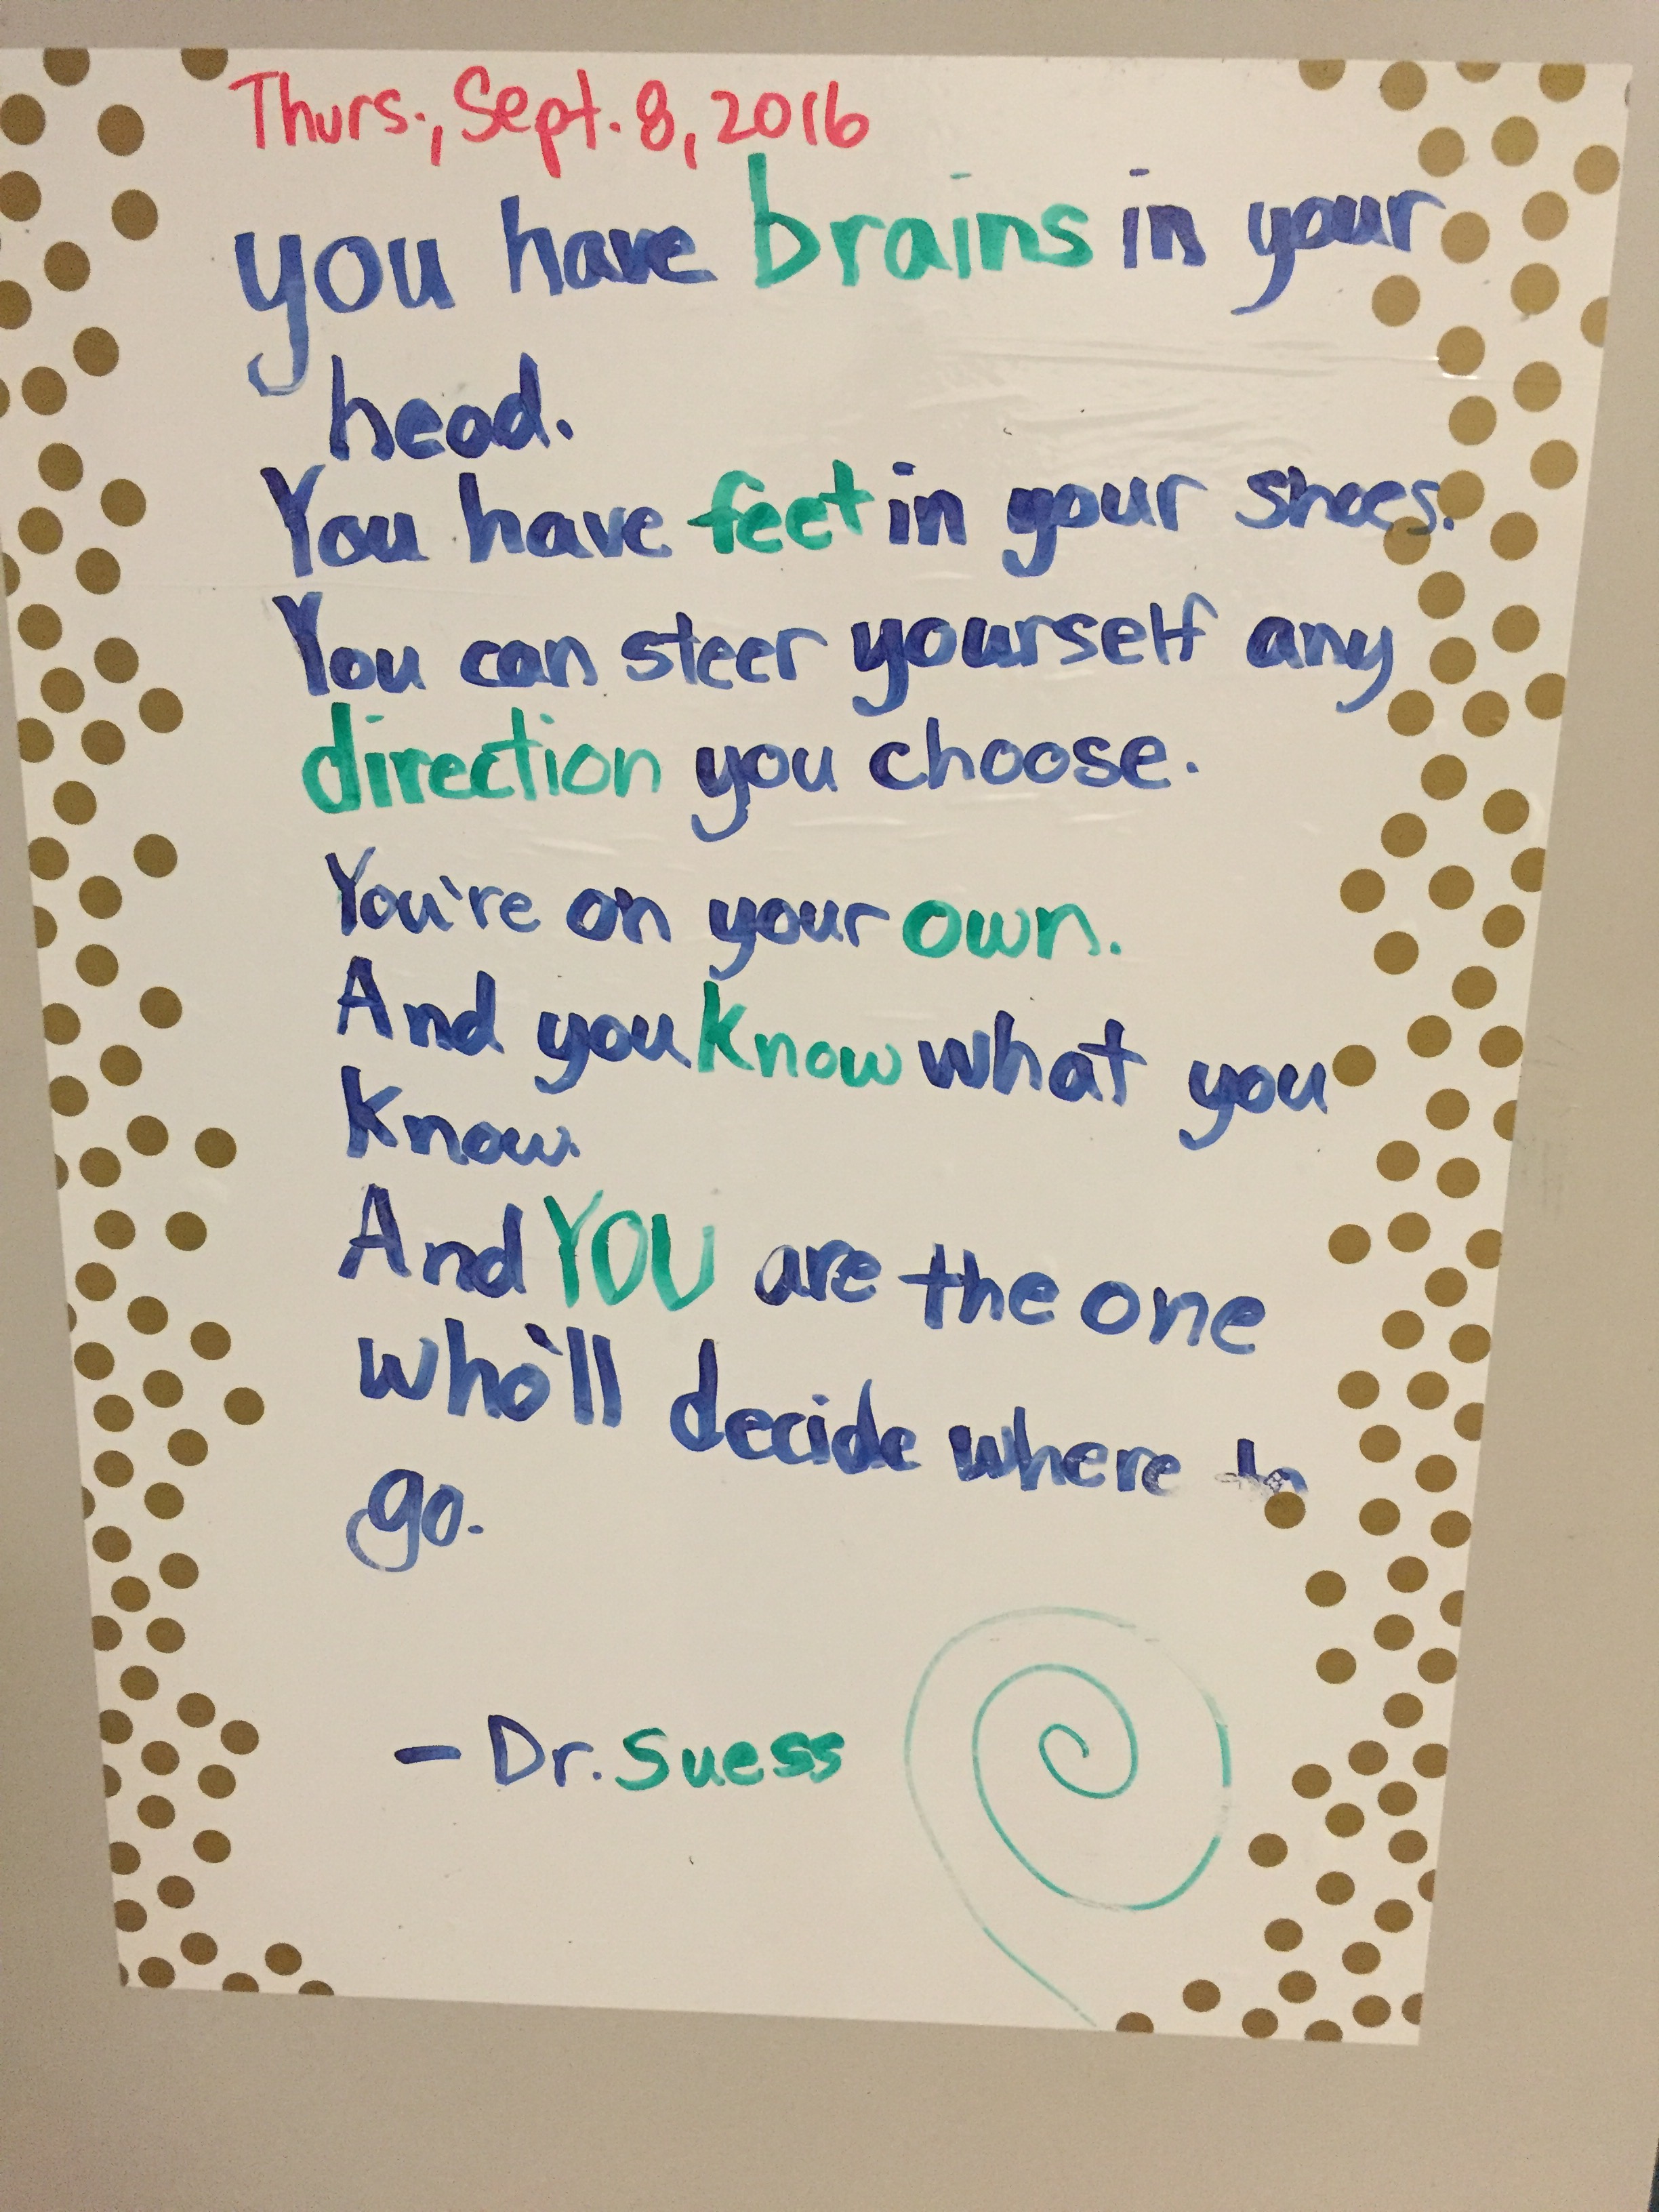 Thurs., Sept. 8, 2016
you have brains in your
head.
You have feet in your shoes.
You can steer yourself any
direction you choose.
You're on your own.
And you know what you
know.
And YOU are the one
who'll decide where to
go.
- Dr. Suess